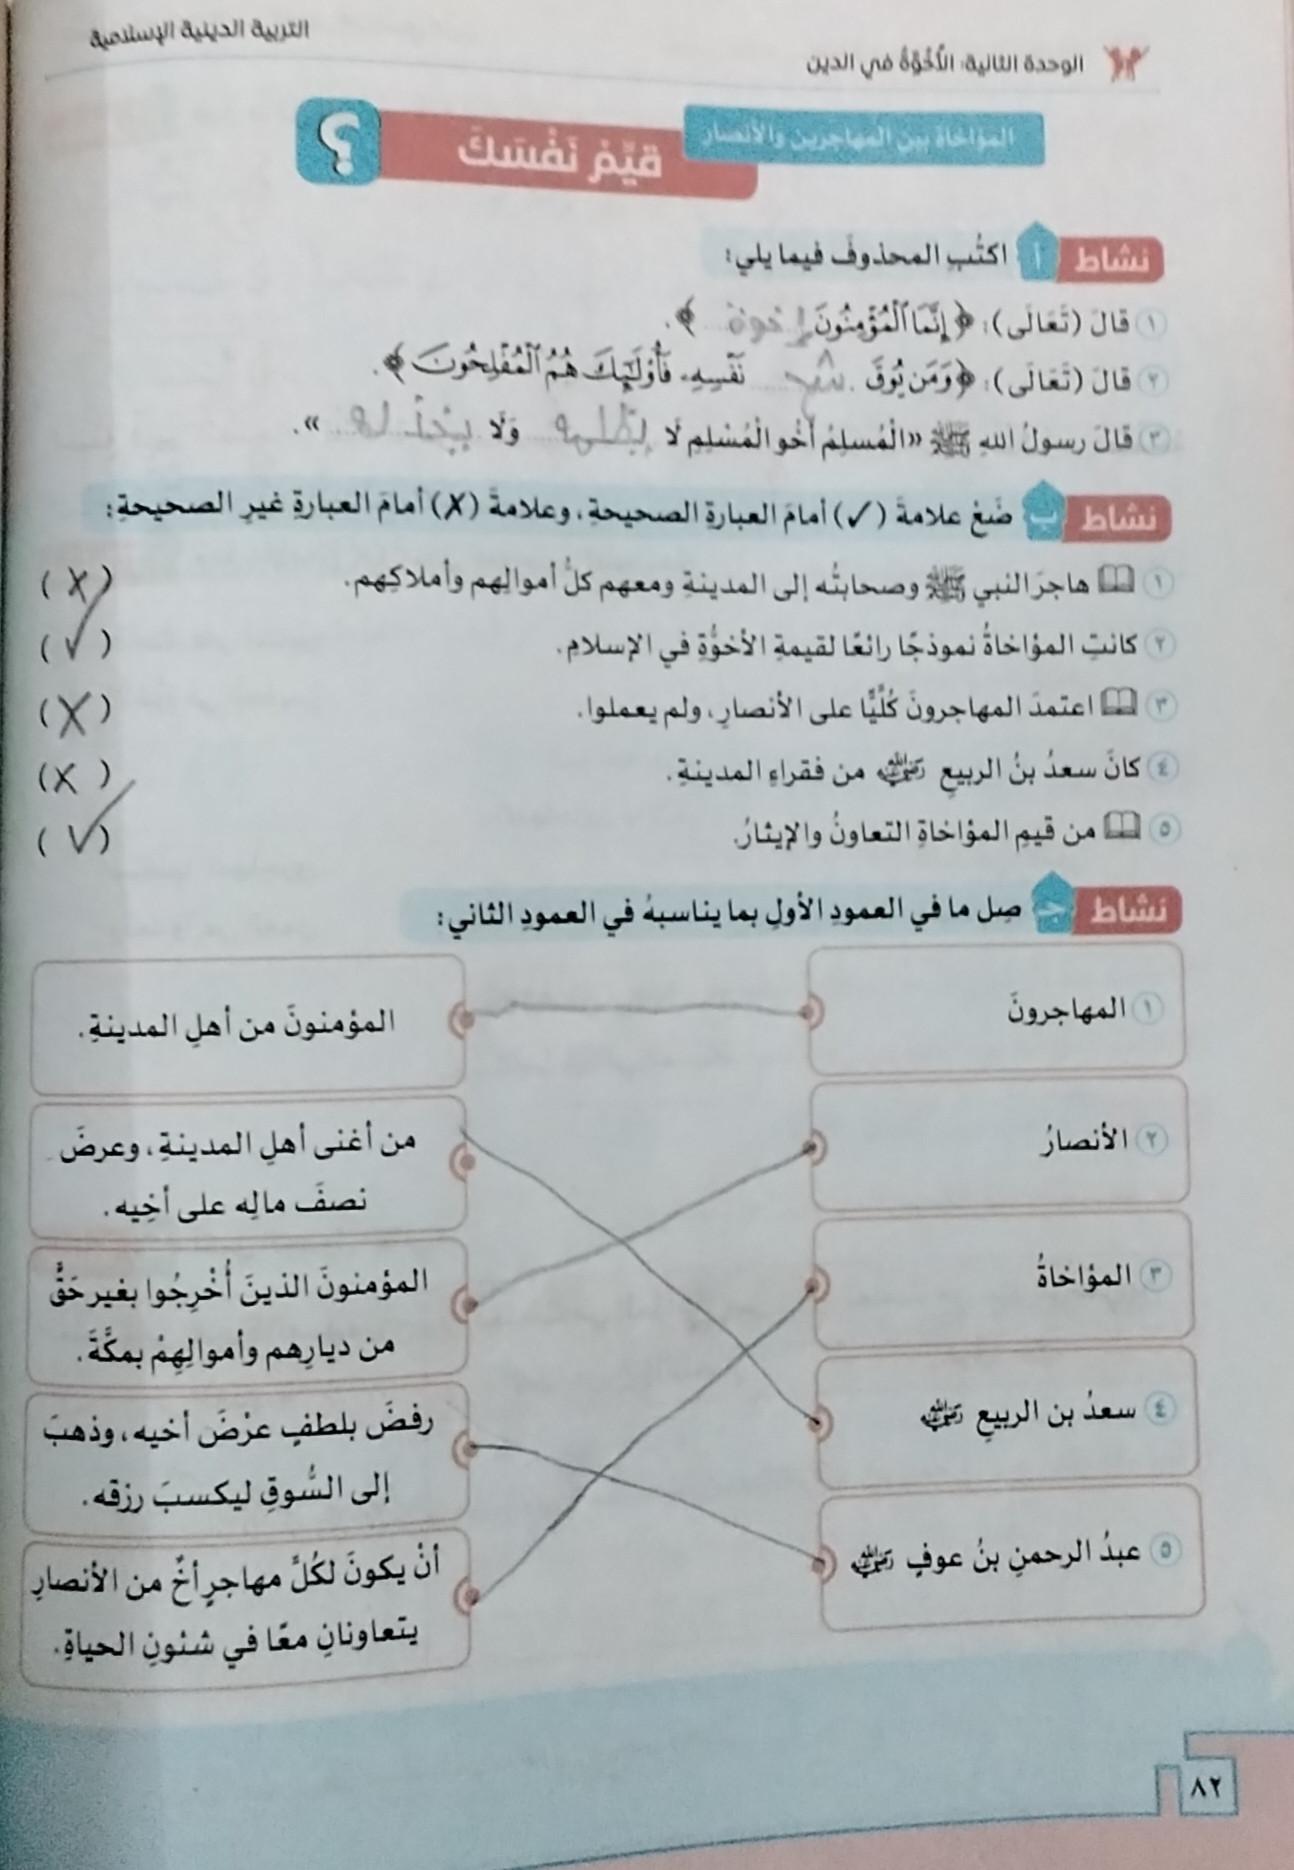 التربية الدينية الإسلامية
الوحدة الثانية: الأُخُوَّةُ في الدين
المؤاخاة بين المهاجرين والأنصار
قَيِّمْ نَفْسَكَ ؟
نشاط أ اكتُبِ المحذوفَ فيما يلي:
١ قالَ (تَعَالَى): ﴿إِنَّمَا ٱلْمُؤْمِنُونَ إخوة﴾.
٢ قالَ (تَعَالَى): ﴿وَمَن يُوقَ شح نَفْسِهِۦ فَأُو۟لَٰٓئِكَ هُمُ ٱلْمُفْلِحُونَ﴾.
٣ قالَ رسولُ اللهِ ﷺ «الْمُسلِمُ أَخُو الْمُسْلِمِ لَا يظلمه وَلَا».
نشاط ب ضَعْ علامةَ (✓) أمامَ العبارةِ الصحيحةِ، وعلامةَ (✗) أمامَ العبارةِ غيرِ الصحيحةِ:
١ هاجرَ النبي ﷺ وصحابتُه إلى المدينةِ ومعهم كلُّ أموالِهم وأملاكِهم. (✗)
٢ كانتِ المؤاخاةُ نموذجًا رائعًا لقيمةِ الأخوَّةِ في الإسلامِ. (✓)
٣ اعتمدَ المهاجرونَ كُلِّيًّا على الأنصارِ، ولم يعملوا. (✗)
٤ كانَ سعدُ بنُ الربيعِ رضي الله عنه من فقراءِ المدينةِ. (✗)
٥ من قيمِ المؤاخاةِ التعاونُ والإيثارُ. (✓)
نشاط جـ صِل ما في العمودِ الأولِ بما يناسبهُ في العمودِ الثاني:
١ المهاجرونَ
المؤمنونَ من أهلِ المدينةِ.
٢ الأنصارُ
من أغنى أهلِ المدينةِ، وعرضَ
نصفَ مالِه على أخِيه.
٣ المؤاخاةُ
المؤمنونَ الذينَ أُخْرِجُوا بغيرِ حَقٍّ
من ديارِهم وأموالِهِمْ بمكَّةَ.
٤ سعدُ بن الربيعِ رضي الله عنه
رفضَ بلطفٍ عرْضَ أخيه، وذهبَ
إلى السُّوقِ ليكسبَ رزقه.
٥ عبدُ الرحمنِ بنُ عوفٍ رضي الله عنه
أنْ يكونَ لكُلِّ مهاجرٍ أخٌ من الأنصارِ
يتعاونانِ معًا في شئونِ الحياةِ.
٨٢